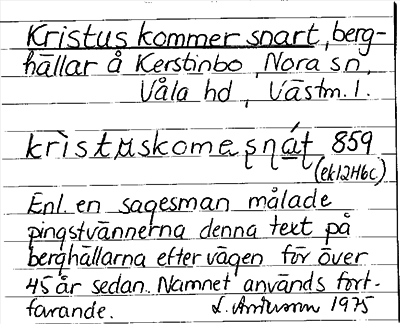 Kristus kommer snart, berg-
hällar å Kerstinbo, Nora sn,
Våla hd, Västm. l.
krìstuskomeʂɳáʈ 859
(ek12H6c)
Enl. en sagesman målade
pingstvännerna denna text på
berghällarna efter vägen för över
45 år sedan. Namnet används fort-
farande. 1975